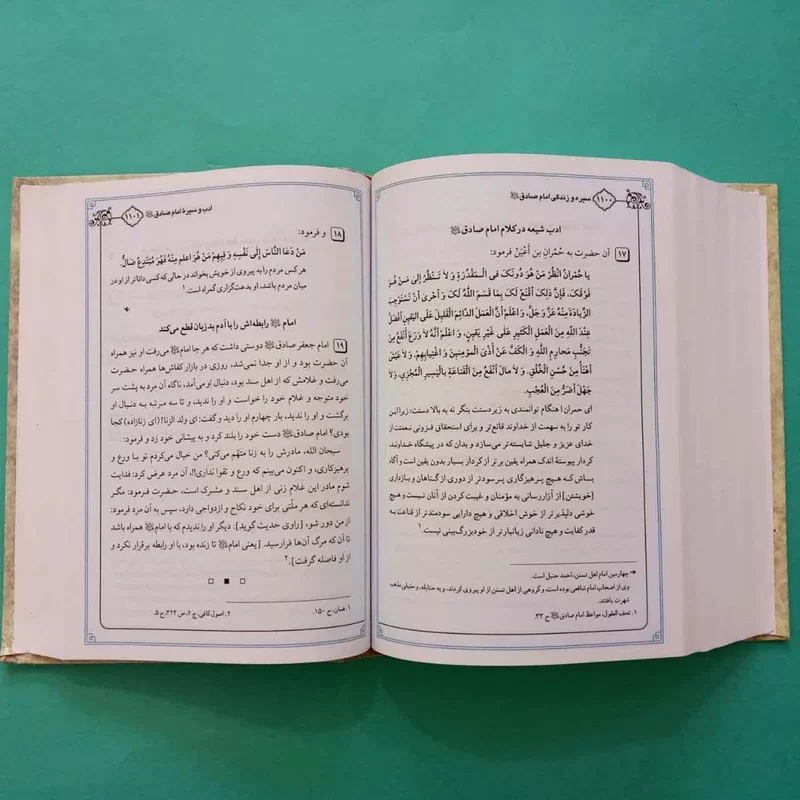 ۱۱۰۰ سیره و زندگی امام صادق ﷺ
ادب شیعه در کلام امام صادق ﷺ
۱۷ آن حضرت به حُمْران بن أَعْیَنْ فرمود:
یا حُمْرانُ انْظُرْ مَنْ هُوَ دُونَکَ فِی الْمَقْدُرَةِ وَ لاَ تَنْظُرْ إلی مَنْ هُوَ
فَوْقَکَ، فَإنَّ ذلِکَ أَقْنَعُ لَکَ بِمَا قَسَمَ اللَّهُ لَکَ وَ أَحْری أَنْ تَسْتَوْجِبَ
الزِّیادَةَ مِنْهُ عَزَّ وَ جَلَّ، وَ اعْلَمْ أَنَّ الْعَمَلَ الدَّائِمَ الْقَلِیلَ عَلَی الْیَقِینِ أَفْضَلُ
عِنْدَ اللَّهِ مِنَ الْعَمَلِ الْکَثِیرِ عَلَی غَیْرِ یَقِینٍ، وَ اعْلَمْ أَنَّهُ لاَ وَرَعَ أَنْفَعُ مِنْ
تَجَنُّبِ مَحَارِمِ اللَّهِ وَ الْکَفِّ عَنْ أَذَی الْمُؤمِنِینَ وَ اغْتِیَابِهِمْ، وَ لاَ عَیْشَ
أَهْنَأُ مِنْ حُسْنِ الْخُلُقِ، وَ لاَ مالَ أَنْفَعُ مِنَ الْقَنَاعَةِ بِالْیَسِیرِ الْمُجْزِی، وَ لاَ
جَهْلَ أَضَرُّ مِنَ الْعُجْبِ.
ای حمران! هنگام توانمندی به زیردستت بنگر نه به بالا دستت؛ زیرا این
کار تو را به سهمت از خداوند قانع‌تر و برای استحقاق فزونی نعمت از
خدای عزیز و جلیل شایسته‌تر می‌سازد و بدان که در پیشگاه خداوند،
کردار پیوستهٔ اندک همراه یقین برتر از کردار بسیار بدون یقین است و آگاه
باش که هیچ پرهیزگاری پرسودتر از دوری از گناهان و بازداری
[خویشتن] از آزاررسانی به مؤمنان و غیبت کردن از آنان نیست و هیچ
خوشی دلپذیرتر از خوش اخلاقی و هیچ دارایی سودمندتر از قناعت به
قدر کفایت و هیچ نادانی زیانبارتر از خودبزرگ‌بینی نیست.۱
چهارمین امام اهل تسنن، احمد حنبل است.
وی از اصحاب امام شافعی بوده است، و گروهی از اهل تسنن از او پیروی کردند، و به حنابله، و حنبلی مذهب
شهرت یافتند.
۱. تحف العقول، مواعظ امام صادق ﷺ ح ۳۳.
ادب و سیرهٔ امام صادق ﷺ ۱۱۰۱
۱۸ و فرمود:
مَنْ دَعَا النَّاسَ إِلَی نَفْسِهِ وَ فِیهِمْ مَنْ هُوَ اَعْلَمُ مِنْهُ فَهُوَ مُبْتَدِعٌ ضَالٌّ.
هر کس مردم را به پیروی از خویش بخواند در حالی که کسی داناتر از او در
میان مردم باشد، او بدعت‌گزاری گمراه است.۱
امام ﷺ رابطه‌اش را با آدم بد زبان قطع می‌کند
۱۹ امام جعفر صادق ﷺ دوستی داشت که هر جا امام ﷺ می‌رفت او نیز همراه
آن حضرت بود و از او جدا نمی‌شد، روزی در بازار کفاش‌ها همراه حضرت
می‌رفت و غلامش که از اهل سند بود، دنبال او می‌آمد، ناگاه آن مرد به پشت سر
خود متوجه و غلام خود را خواست و او را ندید، و تا سه مرتبه به دنبال او
برگشت و او را ندید، بار چهارم او را دید و گفت: ای ولد الزنا! (ای زنازاده) کجا
بودی؟ امام صادق ﷺ دست خود را بلند کرد و به پیشانی خود زد و فرمود:
سبحان الله، مادرش را به زنا متهم می‌کنی؟ من خیال می‌کردم تو با ورع و
پرهیزکاری، و اکنون می‌بینم که ورع و تقوا نداری!!، آن مرد عرض کرد: فدایت
شوم مادر این غلام زنی از اهل سند و مشرک است، حضرت فرمود: مگر
ندانسته‌ای که هر ملّتی برای خود نکاح و ازدواجی دارد، سپس به آن مرد فرمود:
از من دور شو، [راوی حدیث گوید]: دیگر او را ندیدم که با امام ﷺ همراه باشد
تا آن که مرگ آن‌ها فرارسید. [یعنی امام ﷺ تا زنده بود، با او رابطه برقرار نکرد و
از او فاصله گرفت].۲
۱. همان، ح ۱۵۰. ۲. اصول کافی، ج ۲، ص ۳۲۴، ح ۵.